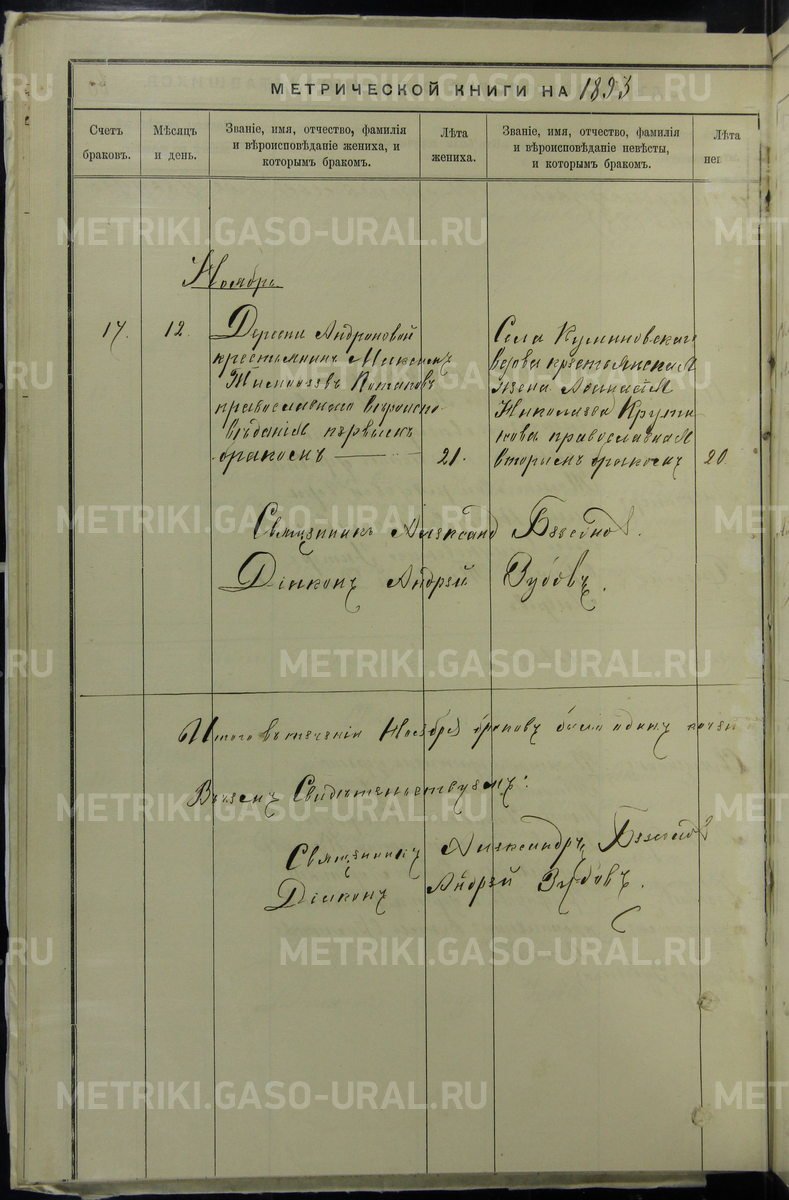 МЕТРИЧЕСКОЙ КНИГИ НА 1893
Счетъ браковъ.
Мѣсяцъ и день.
Званіе, имя, отчество, фамилія
и вѣроисповѣданіе жениха, и
которымъ бракомъ.
Лѣта жениха.
Званіе, имя, отчество, фамилія
и вѣроисповѣданіе невѣсты,
и которымъ бракомъ.
Лѣта
Ноябрь
17.
12.
Деревни Андроновой
крестьянинъ Максимъ
православнаго вѣроиспо
вѣданія первымъ
бракомъ
21.
Села
вдова крестьянская
жена
Николаева Крути
кова православная
вторымъ бракомъ
20
Священникъ Александ
Діаконъ Андрей Зубовъ.
Итого въ теченіи Ноября браковъ было одинъ
Въ чемъ Свидѣтельствуемъ:
Священникъ Александръ
Діаконъ Андрей Зубовъ.
METRIKI.GASO-URAL.RU